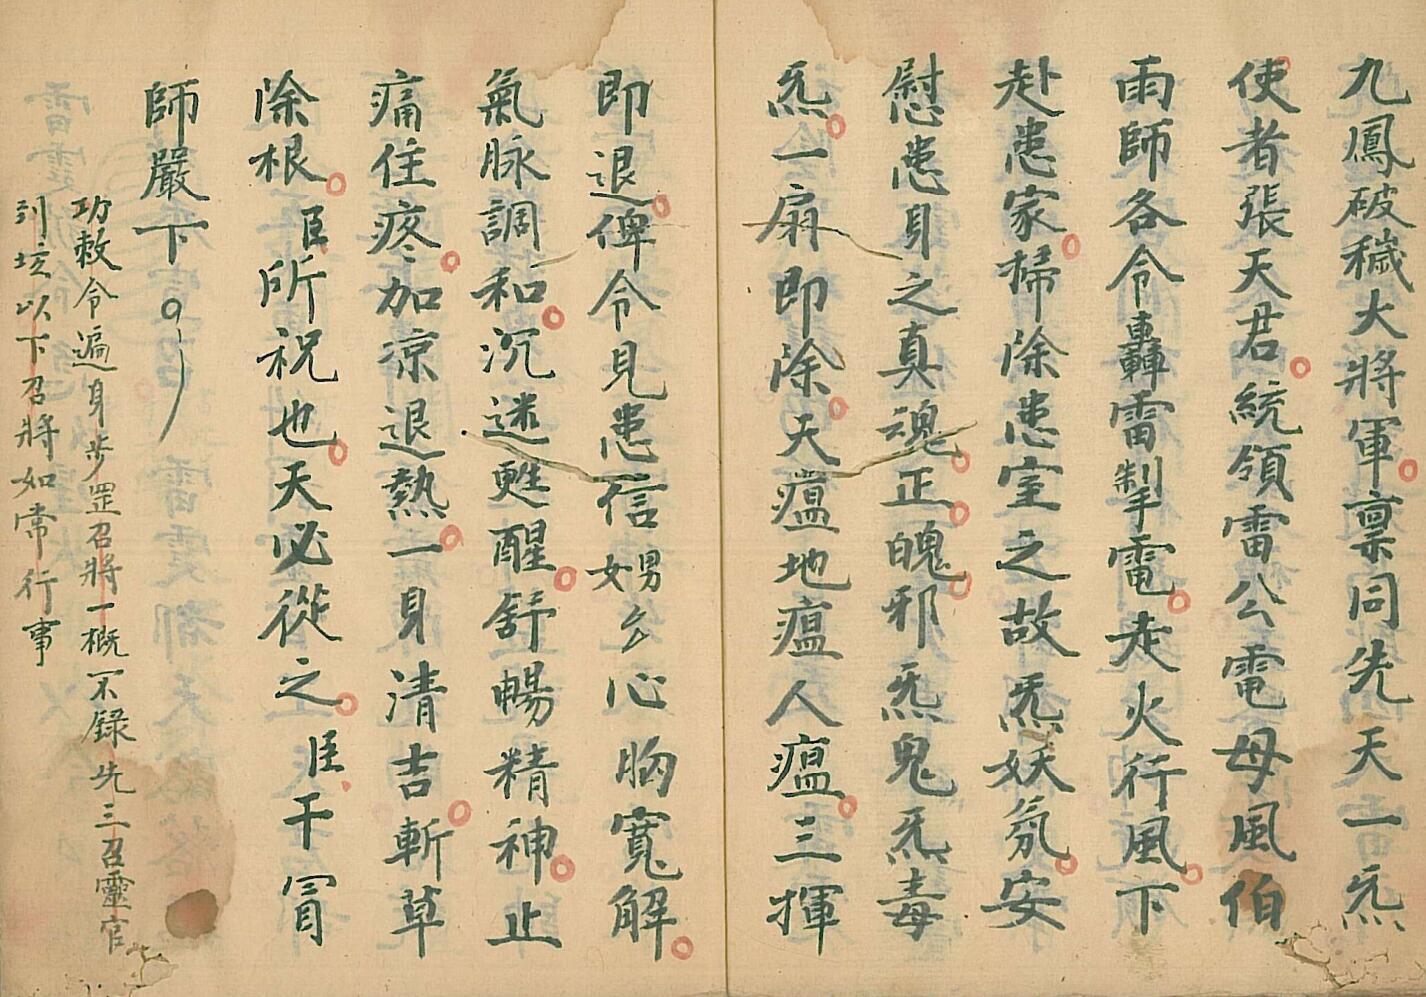 九鳳破穢大將軍禀同先天一炁
使者張天君統領雷公電母風伯
雨師各令轟雷掣電走火行風下
赴患家掃除患室之故炁妖氛安
慰患身之真魂正魄邪炁鬼炁毒
炁一扇即除天瘟地瘟人瘟三揮
即退俾令見患信男女厶心胸寬解
氣脉調和沉迷甦醒舒暢精神止
痛住疼加凉退熱一身清吉斬草
除根臣所祝也天必從之臣干冒
師嚴下
功敕令遍身步罡召將一概不録先三召靈官
到壇以下召將如常行事